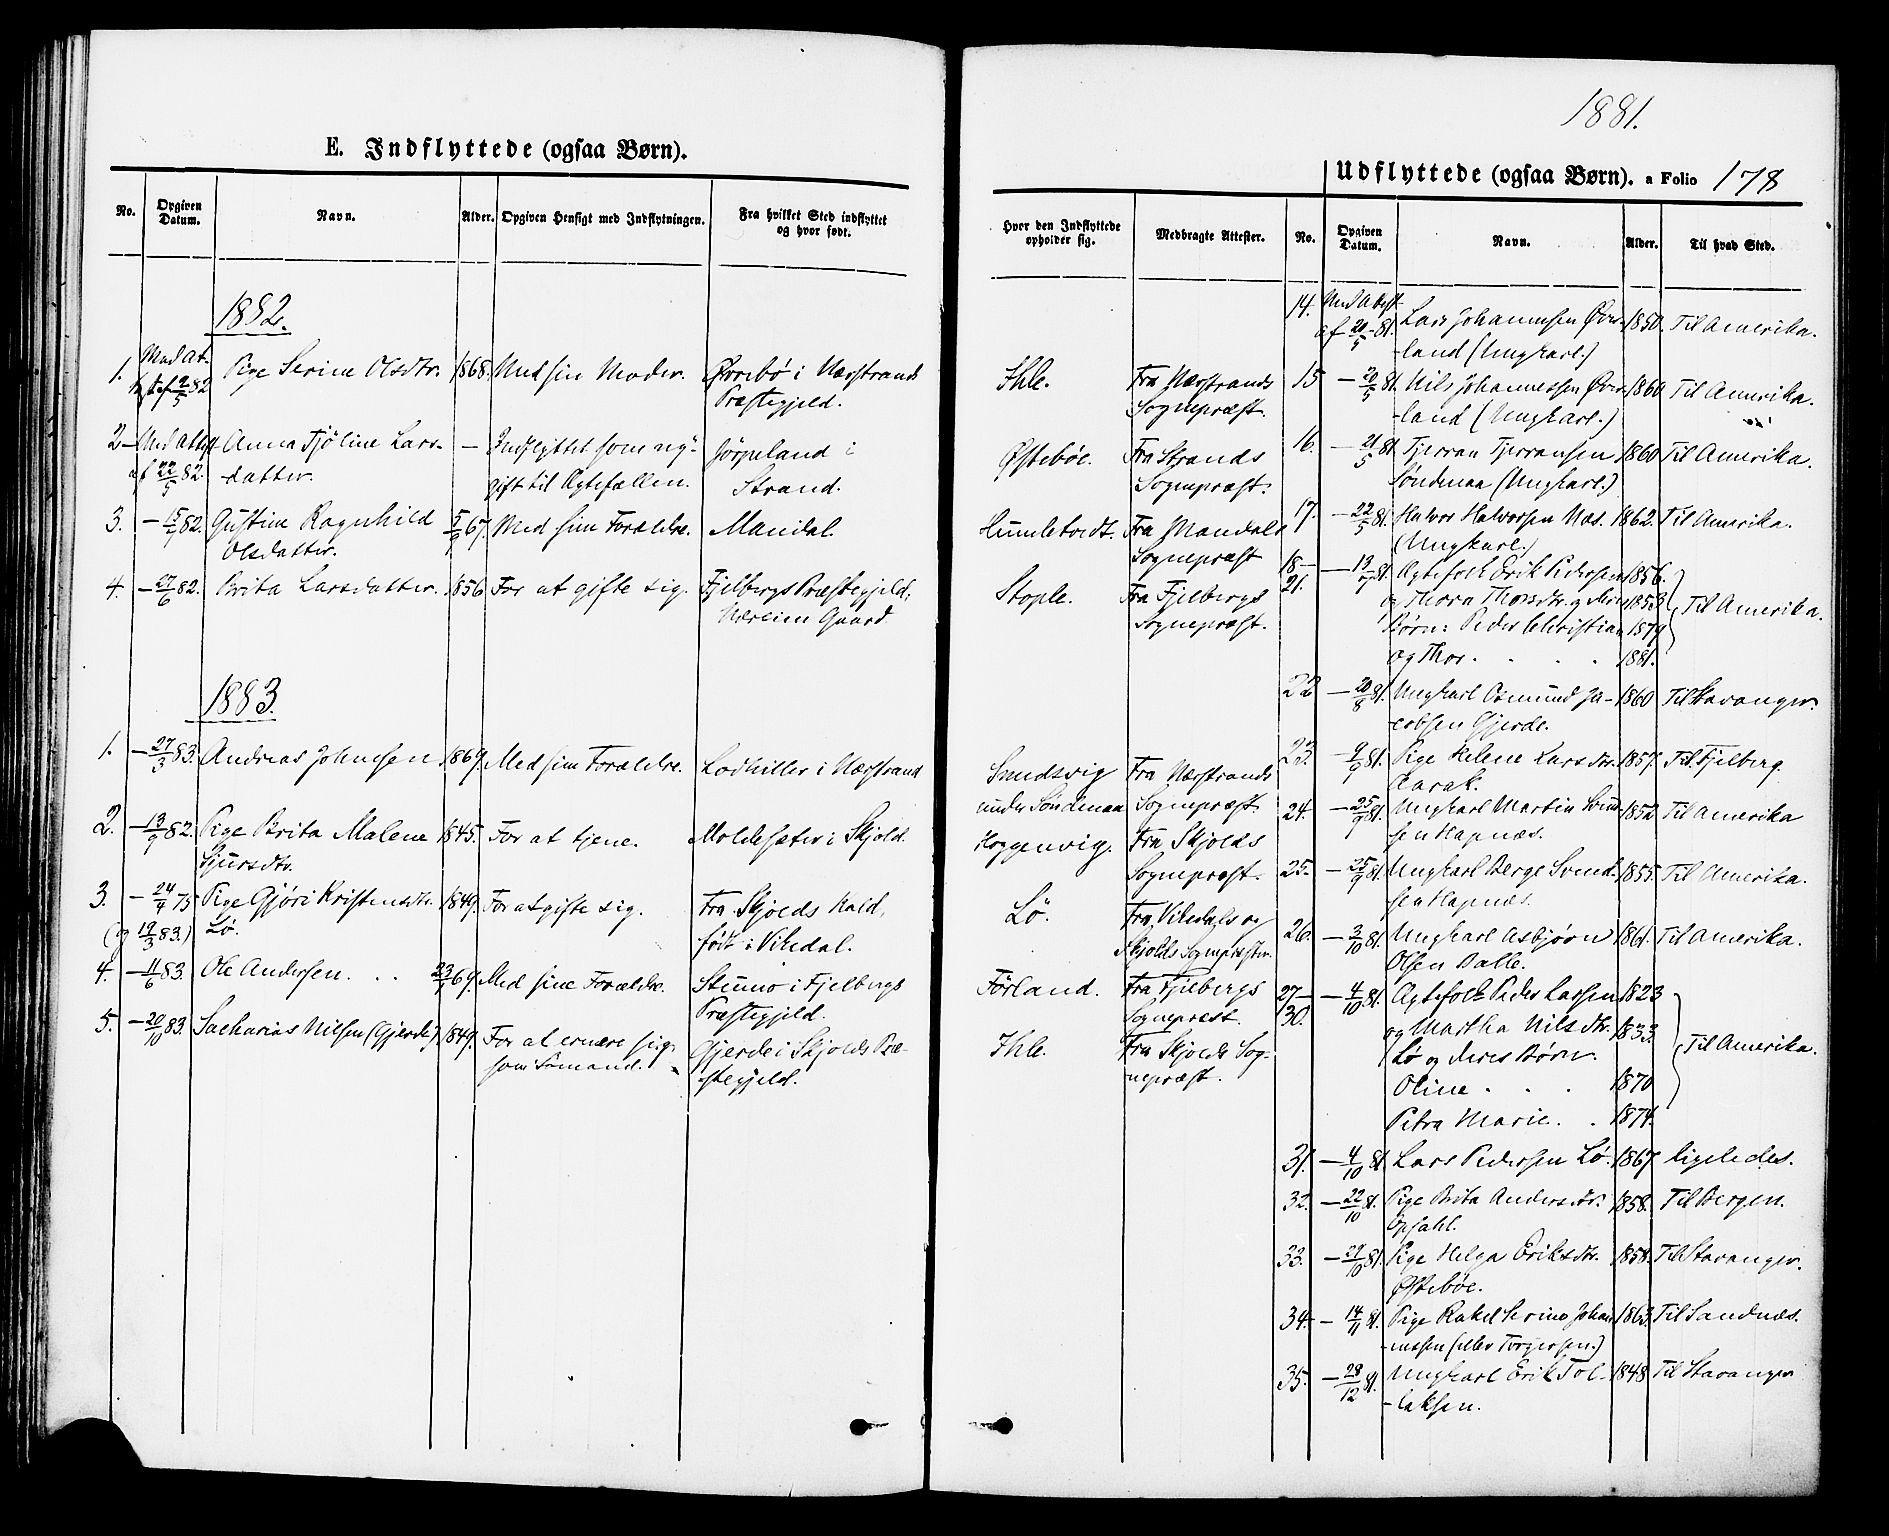 1881.
E. Indflyttede (ogsaa Børn).
Udflyttede (ogsaa Børn). a Folio 178
No. Opgiven Datum. Navn. Alder. Opgiven Hensigt med Indflytningen. Fra hvilket Sted indflyttet og hvor født.
Hvor den Indflyttede opholder sig. Medbragte Attester. No. Opgiven Datum. Navn. Alder. Til hvad Sted.
1882.
1. Med At- Pige Serine Olsdtr. 1868. Med sin Moder. Ørrebø i Nærstrands
test af 2/5 82 Præstegjeld.
2 - Med Attest Anna Tjøline Lars- - Indflyttet som ny- Jørpeland i
af 22/5 82. -datter. gift til Ægtefællen. Strand.
3. - 15/7 82. Gustine Ragnhild 5/7 67. Med sine Forældre. Mandal.
Olsdatter.
4. - 27/6 82. Brita Larsdatter. 1856 For at gifte sig. Fjelbergs Præstegjeld,
Næreim Gaard.
1883.
1. - 27/3 83. Andreas Johnsen 1869. Med sine Forældre. Lodhiller i Nærstrand
2. - 13/9 82. Pige Brita Malene 1845. For at tjene. Moldesæter i Skjold.
Sjursdtr.
3. - 24/4 75 Pige Gjøri Kristensdtr. 1849. For at gifte sig. Fra Skjolds Kald,
(og 19/3 83.) Lø. født i Vikedal.
4. - 11/6 83. Ole Andersen. . . 23/1 69. Med sine Forældre. Stumo i Fjelbergs
Præstegjeld.
5. - 20/10 83 Sacharias Nilsen (Gjerde) 1849. For at ernære sig Gjerde i Skjolds Præ-
som Sømand. -stegjeld.
Ihle. Fra Nærstrands
Sognepræst.
Østebøe. Fra Strands
Sognepræst.
Humletvedt. Fra Mandals
Sognepræst
Stople. Fra Fjelbergs
Sognepræst.
Sundsvig Fra Nærstrands
under Søndenaa Sognepræst.
Hoggenvig. Fra Skjolds
Sognepræst.
Lø. Fra Vikedals og
Skjolds Sognepræster.
Førland. Fra Fjelbergs
Sognepræst.
Ihle. Fra Skjolds Sog-
nepræst.
14. Med Attest Lars Johannesen Øver- 1850. Til Amerika.
af 20/5 81. -land (Ungkarl.)
15 - 20/5 81. Nils Johannessen Øver- 1860 Til Amerika.
-land (Ungkarl.)
16. - 21/5 81 Tjerran Tjerransen 1860 Til Amerika.
Søndenaa (Ungkarl.)
17. - 22/5 81. Halvor Halvorsen Næs. 1862. Til Amerika.
(Ungkarl.)
18- - 19/7 81. Ægtefolk Erik Pedersen 1856.
21. og Thora Thorsdtr. og deres 1853 Til Amerika.
Børn: Peder Christian 1879
og Thor. . . . 1881.
22 - 20/8 81. Ungkarl Osmund Ja- 1860 Til Stavanger.
cobsen Gjerde.
23. - 9/9 81. Pige Helene Larsdtr. 1857. Til Fjelberg.
Aarak.
24. - 25/9 81. Ungkarl Martin Svend- 1852 Til Amerika
sen Hapnæs.
25. - 25/9 81. Ungkarl Berge Svend- 1855. Til Amerika.
sen Hapnæs.
26. - 3/10 81. Ungkarl Asbjørn 1861. Til Amerika.
Olsen Dalle.
27- - 4/10 81. Ægtefolk Peder Larsen 1823
30. og Martha Nilsdtr. 1833.
Lø og deres Børn. Til Amerika.
Oline . . . 1870
Petra Marie. . 1874.
31. - 4/10 81 Lars Pedersen Lø. 1867 ligeledes.
32. - 22/10 81. Pige Brita Andersdtr. 1858. Til Bergen.
Opsahl.
33. - 29/10 81. Pige Helga Eriksdtr. 1858. Til Stavanger.
Østebøe.
34. - 14/11 81. Pige Rakel Serine Johan- 1863. Til Sandnæs.
-nessen (eller Torgersen.)
35. - 28/12 81. Ungkarl Erik Tol- 1848 Til Stavanger
-laksen.